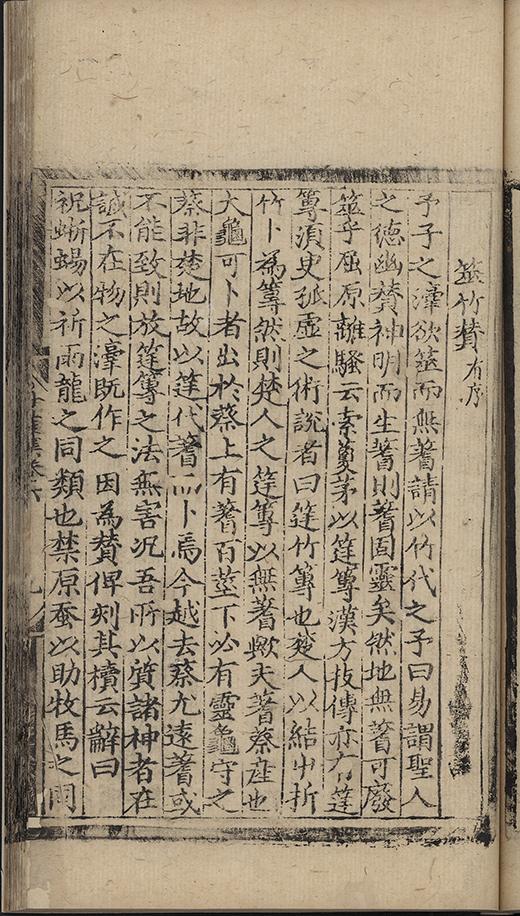 筮竹贊 有序
予子之淳欲筮而無蓍請以竹代之予曰易謂聖人
之德幽贊神明而生蓍則蓍固靈矣然地無蓍可廢
筮乎屈原離騷云索藑茅以筳篿漢方技傳亦有筳
篿須臾孤虛之術說者曰筳竹篿也楚人以結草折
竹卜為篿然則楚人之筳篿以無蓍歟夫蓍蔡産也
大龜可卜者出於蔡上有蓍百莖下必有靈龜守之
蔡非楚地故以筳代蓍而卜焉今越去蔡尤遠蓍或
不能致則放筳篿之法無害况吾所以質諸神者在
誠不在物之淳既作之因為贊俾刻其櫝云辭曰
祝蜥蜴以祈雨龍之同類也禁原蚕以助牧馬之同